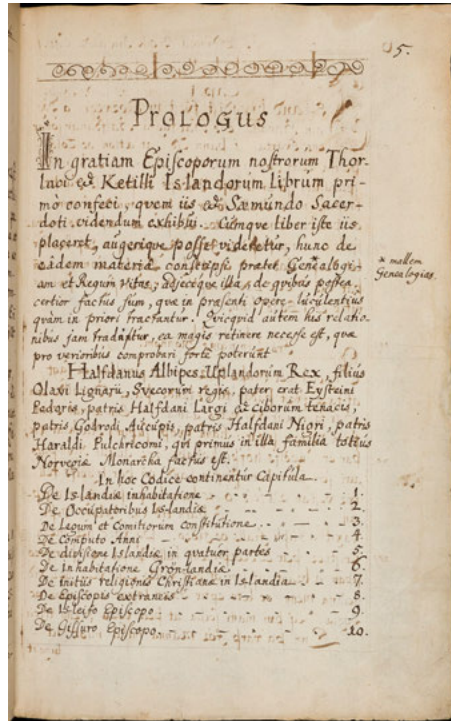 5.
Prologus
In gratiam Episcoporum nostrorum Thor-
laci et Ketilli Islandorum Librum pri-
mò confeci, qvem iis et Sæmundo Sacer-
doti videndum exhibui. Cúmqve liber iste iis
placeret, augeriqve posse videretur, hunc de
eâdem materiâ conscripsi præter Genealogi-
am et Regum vitas, adjecique illa, de qvibus postea
certior factus sum, qvæ in præsenti opere luculentius
qvàm in priori tractantur. Qvicqvid autem his relatio-
nibus jam traditur, ea magis retinere necesse est, qvæ
pro verioribus comprobari fortè poterunt
* mallem
Genealogias.
Halfdanus Albipes Uplandorum Rex, filius
Olavi Lignarii, Svecorum regis, pater erat Eysteini
Pederis, patris Halfdani Largi at Ciborum tenacis,
patris Godrodi Aucupis, patris Halfdani Nigri, patris
Haraldi Pulchricomi, qvi primus in illa familia totius
Norvegiæ Monarcha factus est.
In hoc Codice continentur Capitula
De Islandiæ inhabitatione - - - - 1.
De Occupatoribus Islandiæ - - - - 2.
De Legum et Comitiorum constitutione - - - - 3.
De Computo Anni - - - - 4.
De divisione Islandiæ in qvatuor partes - - - - 5.
De Inhabitatione Grönlandiæ - - - - 6.
De initiis religionis Christianæ in Islandia - - - - 7.
De Episcopis extraneis - - - - 8.
De Isleifo Episcopo - - - - 9.
De Gissuro Episcopo - - - - 10.